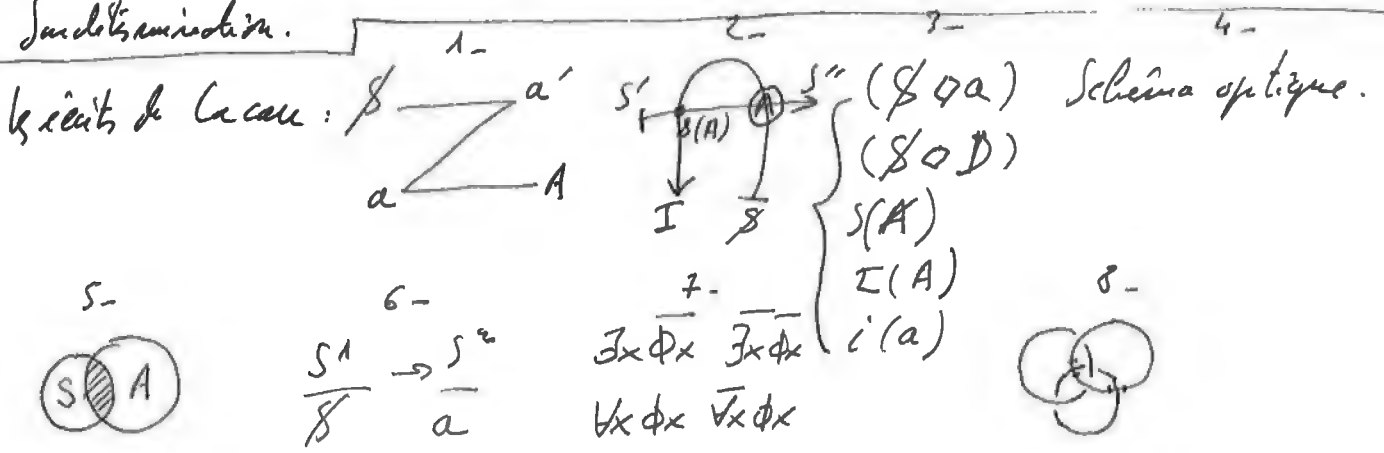 Indétermination.
1- 2- 3- 4-
les écrits de Lacan : $ a' S' s(A) A S'' ($ ◇ a) Schéma optique.
a A ($ ◇ D)
I $ S(Ⱥ)
I(A)
i(a)
5- 6- 7- 8-
S A
S1 → S2 ∃x Φ̅x̅ ∃̅x̅ Φ̅x̅
$ a ∀x Φx ∀̅x̅ Φx